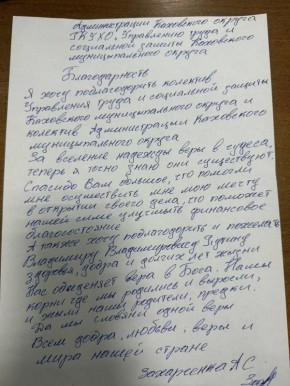 Администрации Каховского округа
ГКУХО, Управлению труда и
социальной защиты Каховского
муниципального округа
Благодарность
Я хочу поблагодарить колектив
Управления труда и социальной защиты
Каховского муниципального округа и
колектив Администрации Каховского
муниципального округа
За вселение надежды веры в чудеса,
теперь я точно знаю они существуют.
Спасибо Вам большое, что помогли
мне осуществить мне мою мечту
в открытии своего дела, что поможет
нашей семье улучшить финансовое
благосостояние
А также хочу поблагодарить и пожелать
Владимиру Владимировичу Путину
здоровья, добра и долгих лет жизни
Нас объеденяет вера в Бога. Наши
корни где мы родились и выросли,
и жили наши родители, предки.
Да мы словяни одной веры
Всем добра, любовы, веры и
мира нашей стране
Захарченко А.С.